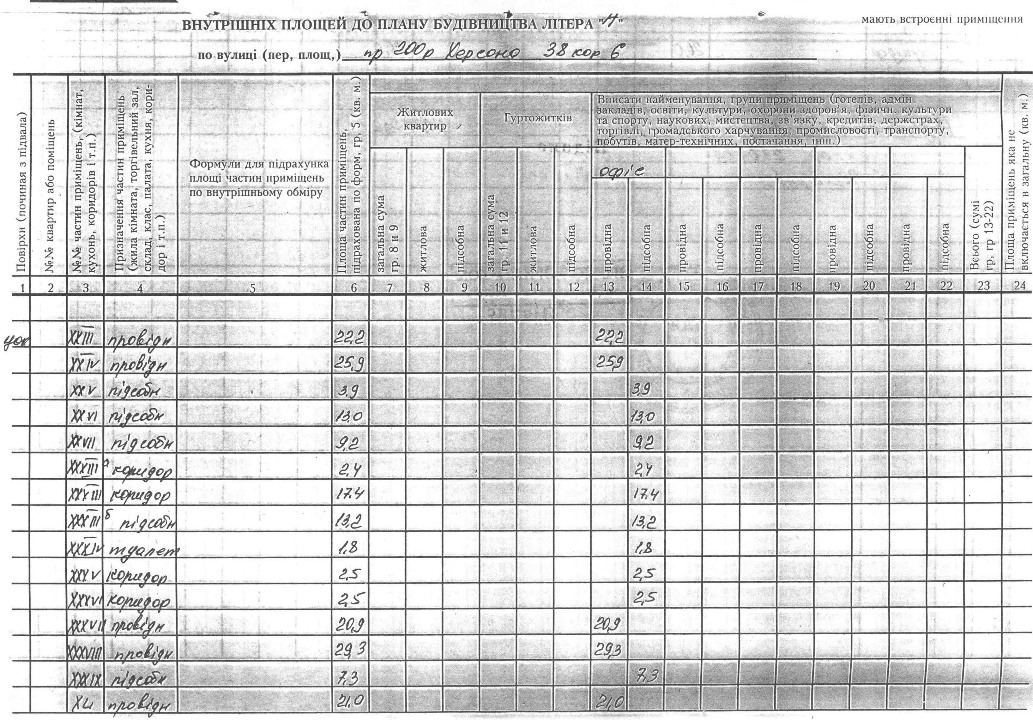 мають встроєнні приміщення
ВНУТРІШНІХ ПЛОЩЕЙ ДО ПЛАНУ БУДІВНИЦТВА ЛІТЕРА "А"
по вулиці (пер, площ,) пр 200р Херсона 38 кор 6
Повірхи (починая з підвала)
№№ квартир або поміщень
№№ частин приміщень, (кімнат, кухонь, коридорів і т.п.)
Призначення частин приміщень (жила кімната, торгівельний зал, склад, клас, палата, кухня, коридор і т.п.)
Формули для підрахунка площі частин приміщень по внутрішньому обміру
Площа частин приміщень, підрахована по форм, гр, 5 (кв. м)
Житлових квартир
Гуртожитків
Вписати найменування, групи приміщень (готелів, адмін
закладів, освіти, культури, охорони здоров'я, фізичн. культури
та спорту, наукових, мистецтва, зв'язку, кредитів, держстрах,
торгівлі, громадського харчування, промисловості, транспорту,
побутів, матер-технічних, постачання, інш.)
офіс
загальна сума гр. 8 и 9
житлова
підсобна
загальна сума гр. 11 и 12
житлова
підсобна
провідна
підсобна
провідна
підсобна
провідна
підсобна
провідна
підсобна
провідна
підсобна
Всього (сумі гр, гр 13-22)
Площа приміщень яка не включається в загалину (кв. м.)
1 2 3 4 5 6 7 8 9 10 11 12 13 14 15 16 17 18 19 20 21 22 23 24
цок XXIII провідн 22,2 22,2
XXIV провідн 25,9 25,9
XXV підсобн 3,9 3,9
XXVI підсобн 13,0 13,0
XXVII підсобн 9,2 9,2
XXXIII а коридор 2,4 2,4
XXXIII коридор 17,4 17,4
XXXIII б підсобн 13,2 13,2
XXXIV туалет 1,8 1,8
XXXV коридор 2,5 2,5
XXXVI коридор 2,5 2,5
XXXVII провідн 20,9 20,9
XXXVIII провідн 29,3 29,3
XXXIX підсобн 7,3 7,3
XL провідн 21,0 21,0